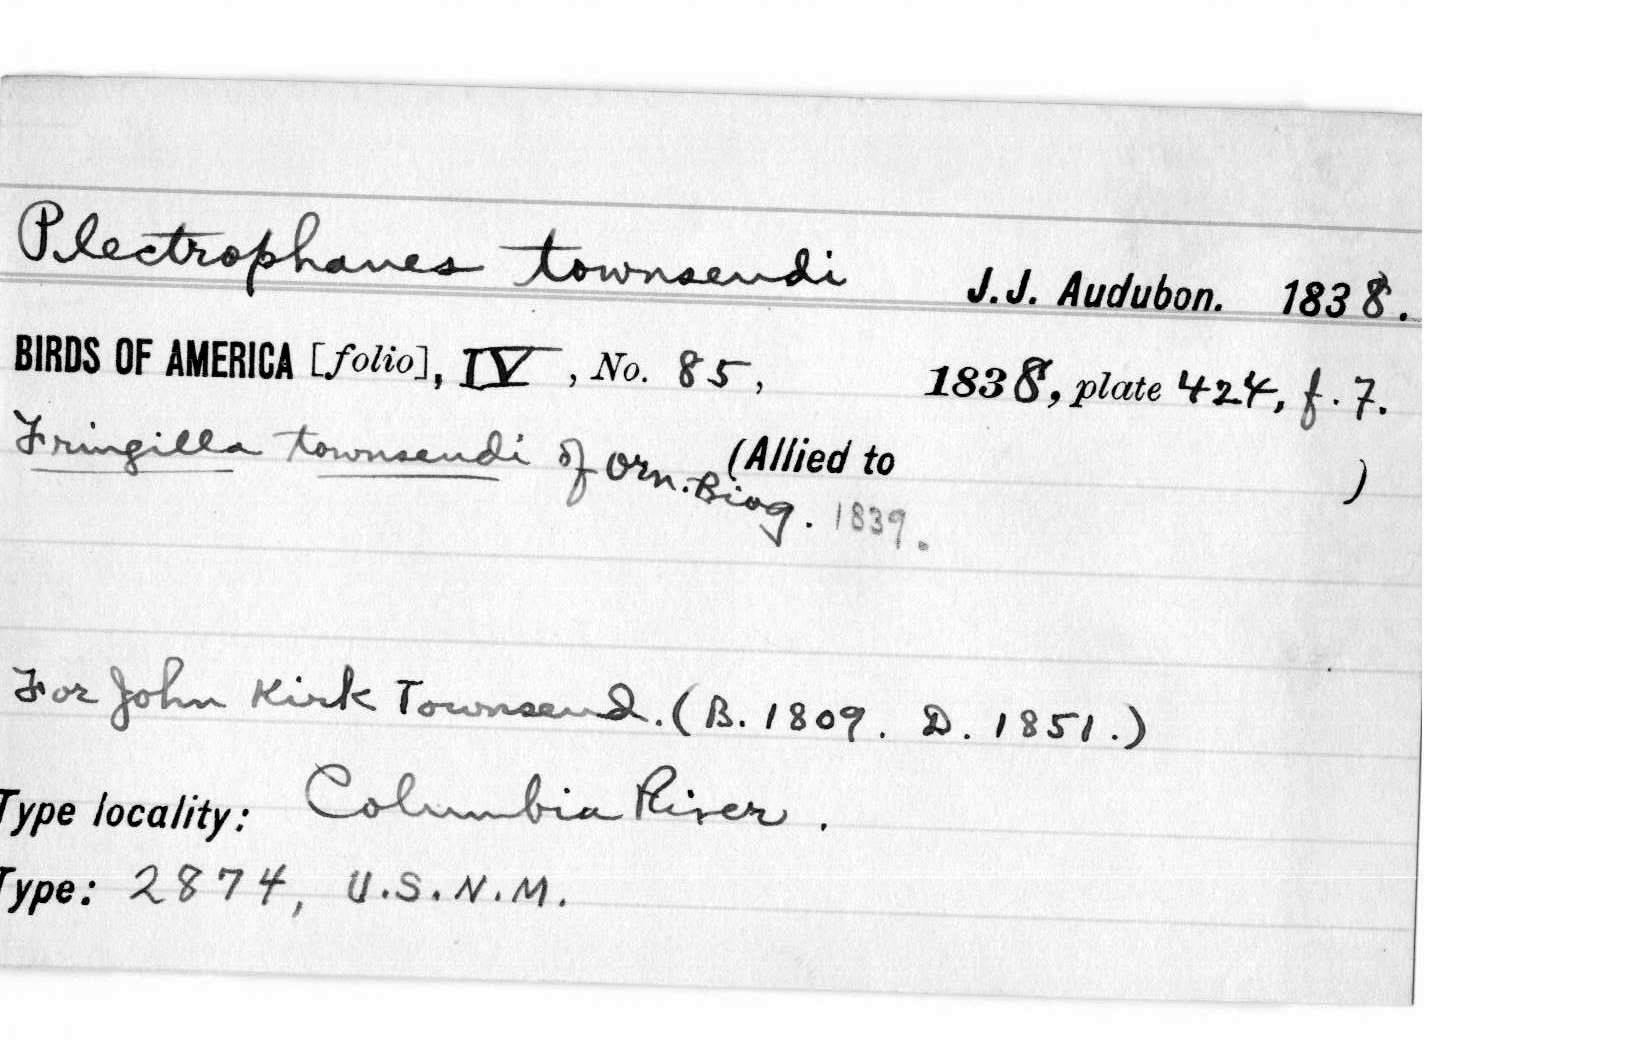 Plectrophanes townsendi J.J. Audubon. 1838.
BIRDS OF AMERICA [folio], IV, No. 85, 1838, plate 424, f. 7.
Fringilla townsendi of Orn. Biog. 1839. (Allied to )
For John Kirk Townsend. (B. 1809. D. 1851.)
Type locality: Columbia River.
Type: 2874, U.S.N.M.